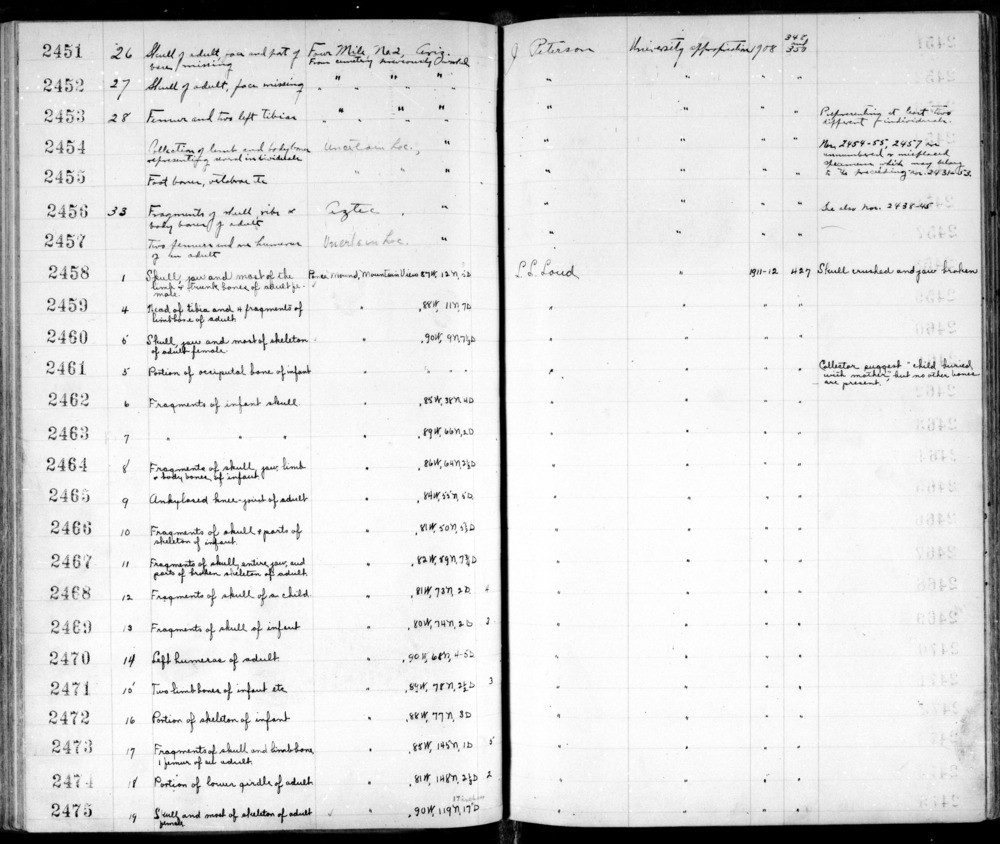 2451 26 Skull of adult, face and part of Four Mile, No2, Ariz. J Peterson University appropriation 1908 349/350
base missing From cemetery previously
2452 27 Skull of adult, face missing " " " " " " "
2453 28 Femur and two left tibias " " " " " " " Representing at least two
different individuals.
2454 Collection of limb and body bones Uncertain Loc., " " " " " Nos. 2454-55, 2457 are
representing several individuals unnumbered & misplaced
specimens which may belong
2455 Foot bones, vertebrae etc " " " " " " " to the preceding nos. 2431-53.
2456 33 Fragments of skull, ribs & Aztec . " " " " " See also nos. 2438-45
body bones of adult
2457 Two femurs and one humerus Uncertain Loc. " " " " "
of an adult
2458 1 Skull, jaw and most of the Mound, Mountain View 87W, 12N, 5D L.L. Loud " 1911-12 427 Skull crushed and jaw broken
limb & trunk bones of adult fe-
male.
2459 4 Head of tibia and 4 fragments of " , 88W, 11N, 7D " " " "
limb bone of adult
2460 5 Skull, jaw and most of skeleton " , 90W, 9N, 7½D " " " "
of adult female.
2461 5 Portion of occipital bone of infant " " " " " " " " Collector suggest "child buried
with mother", but no other bones
are present.
2462 6 Fragments of infant skull " , 85W, 38N, 4D " " " "
2463 7 " " " " , 89W, 66N, 2D " " " "
2464 8 Fragments of skull, jaw, limb " , 86W, 64N, 2½D " " " "
& body bones of infant
2465 9 Ankylosed knee-joint of adult " , 84W, 55N, 5D " " " "
2466 10 Fragments of skull & parts of " , 81W, 50N, 5½D " " " "
skeleton of infant
2467 11 Fragments of skull, entire jaw, and " , 82W, 59N, 7½D " " " "
parts of broken skeleton of adult
2468 12 Fragments of skull of a child " , 81W, 73N, 2D 4 " " " "
2469 13 Fragments of skull of infant " , 80W, 74N, 2D 3 " " " "
2470 14 Left humerus of adult " , 90W, 68N, 4-5D " " " "
2471 15 Two limb bones of infant etc " , 78N, 2½D 3 " " " "
2472 16 Portion of skeleton of infant " , 88W, 77N, 3D " " " "
2473 17 Fragments of skull and limb bone, " , 85W, 145N, 1D 5 " " " "
1 femur of an adult
2474 18 Portion of lower girdle of adult " , 81W, 148N, 2½D 2 " " " "
2475 19 Skull and most of skeleton of adult , 90W, 119N, 17"D " " " "
female